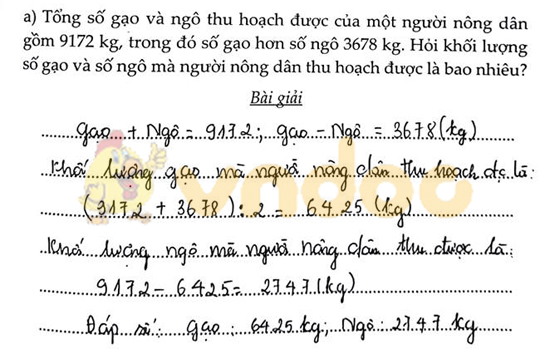 a) Tổng số gạo và ngô thu hoạch được của một người nông dân
gồm 9172 kg, trong đó số gạo hơn số ngô 3678 kg. Hỏi khối lượng
số gạo và số ngô mà người nông dân thu hoạch được là bao nhiêu?
Bài giải
gạo + Ngô = 9172; gạo - Ngô = 3678 (kg)
Khối lượng gạo mà người nông dân thu hoạch đc là:
(3172 + 3678) : 2 = 6425 (kg)
Khối lượng ngô mà người nông dân thu được là:
9172 - 6425 = 2747 (kg)
Đáp số: gạo: 6425 kg; Ngô: 2747 kg
vndoc